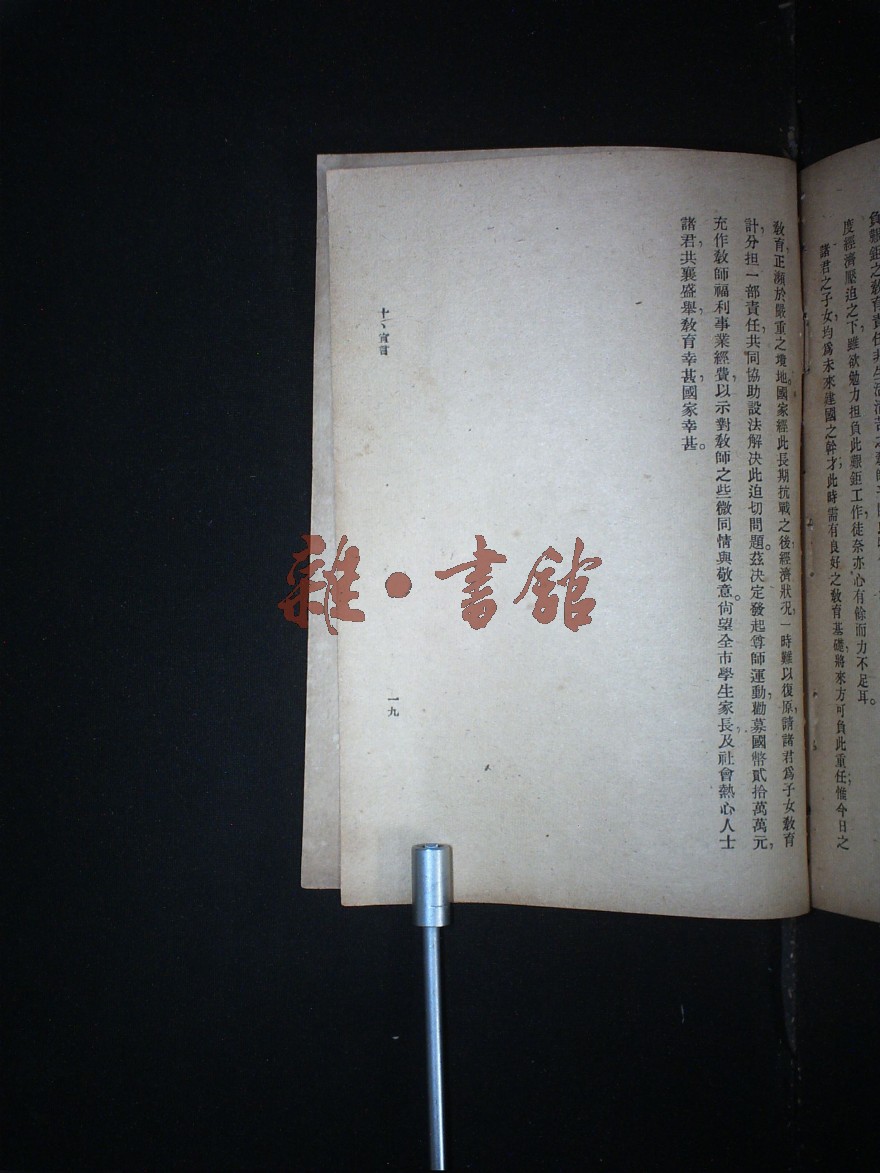 負艱鉅之教育責任非生活清苦之教師
度經濟壓迫之下，雖欲勉力担負此艱鉅工作，徒奈亦心有餘而力不足耳。
諸君之子女，均爲未來建國之幹才，此時需有良好之教育基礎，將來方可負此重任；惟今日之
教育，正瀕於嚴重之境地。國家經此長期抗戰之後，經濟狀況，一時難以復原，請諸君爲子女教育
計，分担一部責任，共同協助設法解决此迫切問題。茲决定發起尊師運動，勸募國幣貳拾萬萬元，
充作教師福利事業經費，以示對教師之些微同情與敬意。尙望全市學生家長，及社會熱心人士
諸君，共襄盛舉，教育幸甚，國家幸甚。
十、宣言
一九
雜·書館